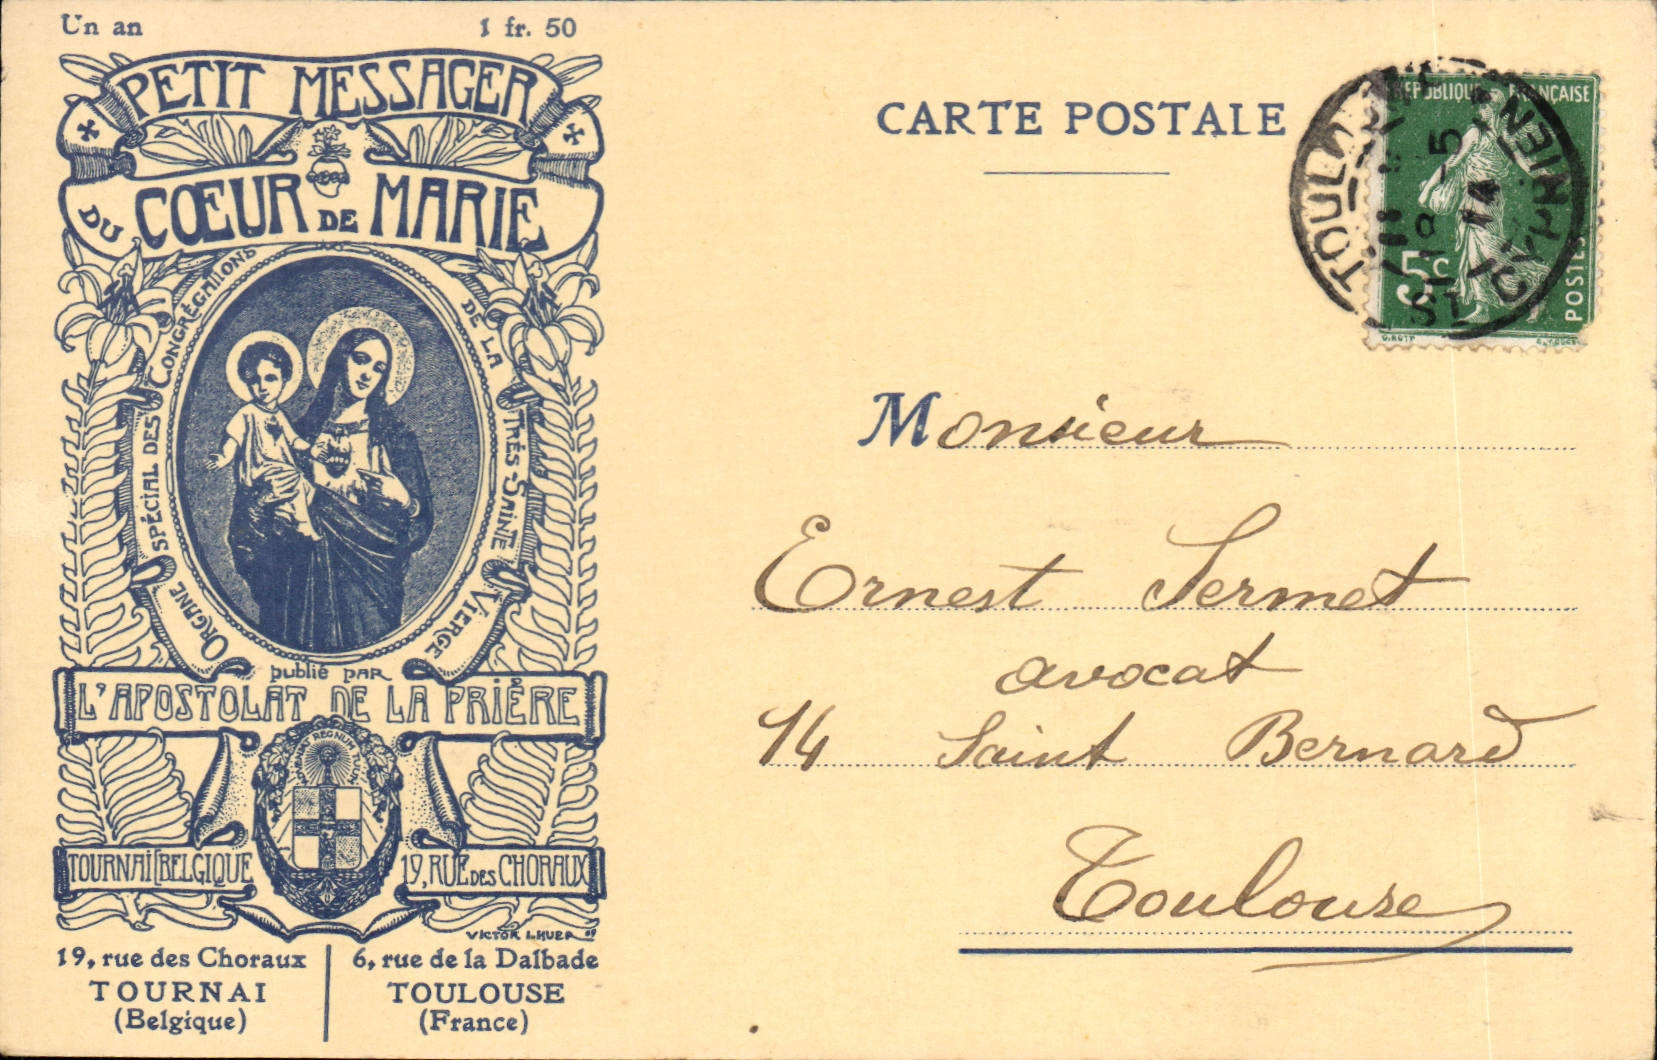 Un an 1 fr. 50
PETIT MESSAGER
DU CŒUR DE MARIE
ORGANE SPÉCIAL DES CONGRÉGATIONS
DE LA TRÈS-SAINTE VIERGE
publié PAR
L'APOSTOLAT DE LA PRIÈRE
ADVENIAT REGNUM TUUM
TOURNAI (BELGIQUE
19, RUE DES CHORAUX
VICTOR LHUER
19, rue des Choraux
TOURNAI
(Belgique)
6, rue de la Dalbade
TOULOUSE
(France)
CARTE POSTALE
RÉPUBLIQUE FRANÇAISE
5c
POSTES
TOULOUSE
ST
14
Monsieur
Ernest Sermet
avocat
14 Saint Bernard
Toulouse